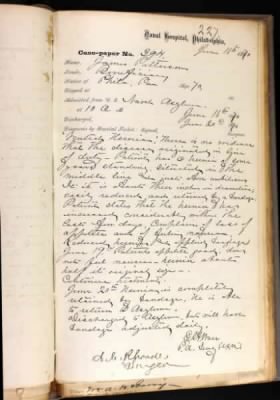 227
Naval Hospital, Philadelphia,
June 18th 1890
Case-paper No. 294
Name, James Patterson
Rank, Beneficiary
Native of Phila, Pa Age, 70
Shipped at
Admitted from U. S. Naval Asylum June 18th 90
at 10 A.M.
Discharged, June 20th 90
Diagnosis by Hospital Ticket. Signed
Ventral Hernia. There is no evidence
that the disease originated in line
of duty. Patient has a hernia of some
years standing, situated in the
middle line just above umbilicus
It is about three inches in diameter
easily reduced and retained by a bandage.
Patient states that the hernia has
increased considerably within the
last few days. Complains of loss of
appetite and of
Reduced hernia & applied bandage
June 19 Patients appetite good, does
not feel nervous. hernia about
half its original size.
Continue treatment.
June 20th Hernia is completely
retained by bandage. He is able
to return to Asylum.
Discharged to Asylum, but will have
bandage adjusted daily.
P.A. Surg. U.S.N.
Surgeon